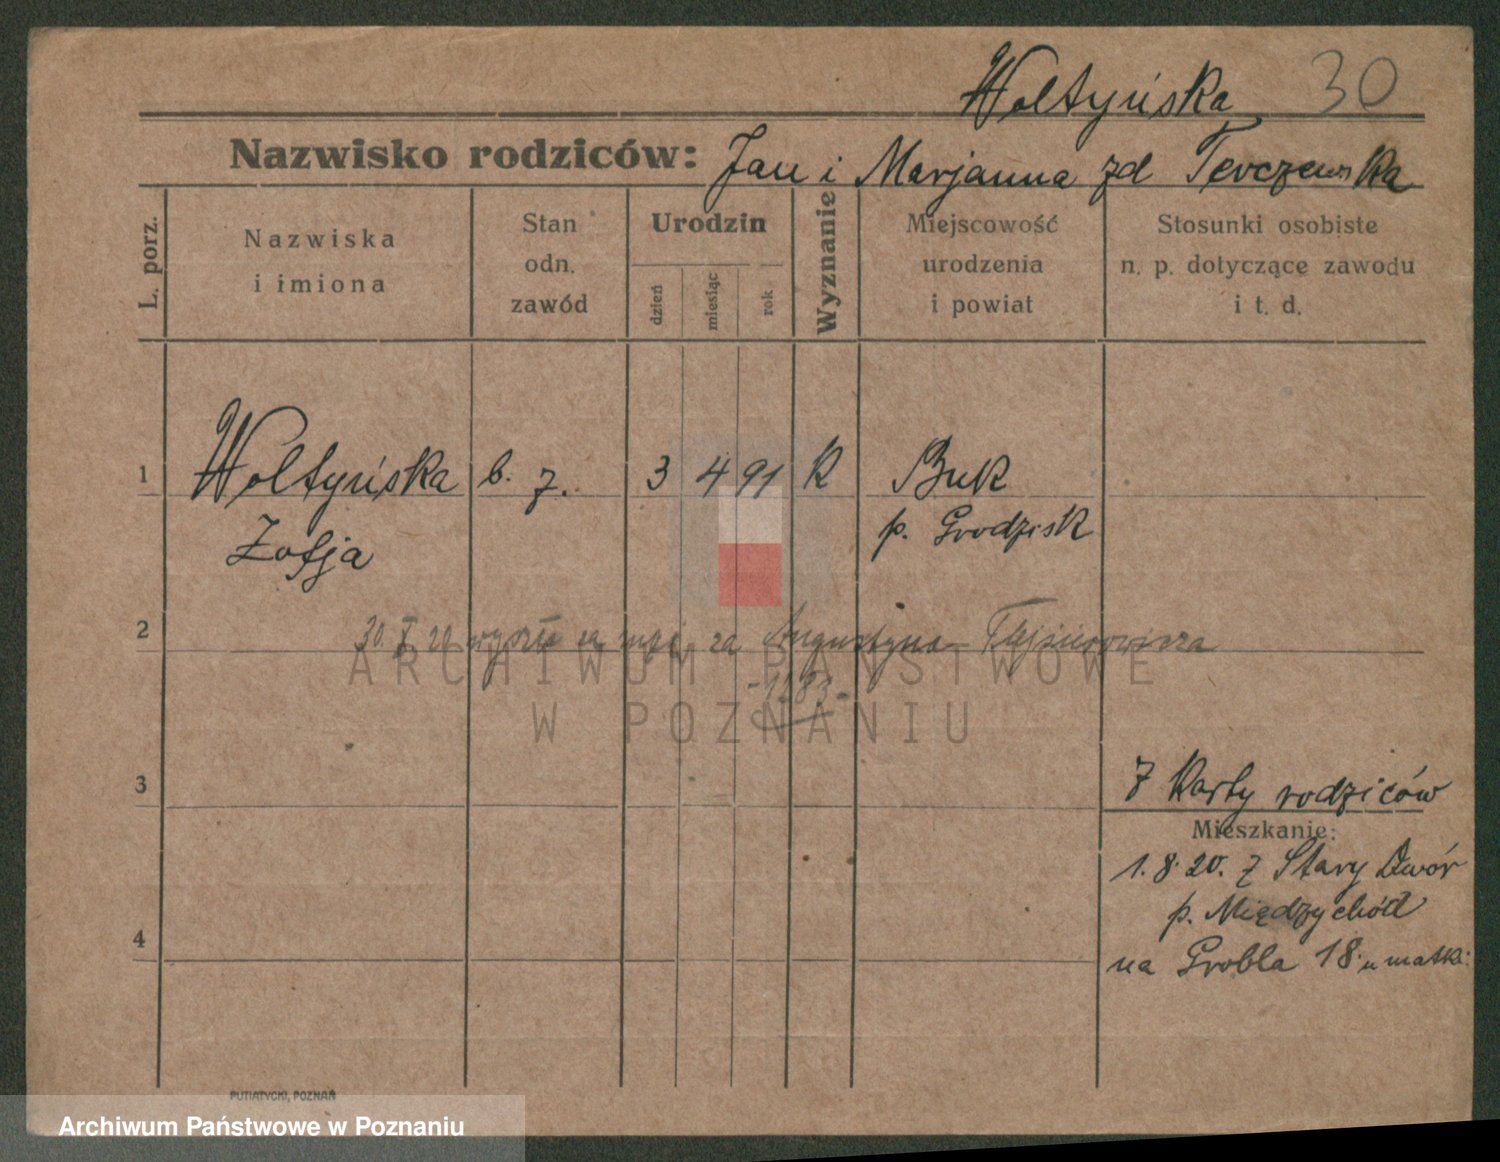 Wołtyńska 30
Nazwisko rodziców: Jan i Marjanna zd Terczewska
L. porz.
Nazwiska
i imiona
Stan
odn.
zawód
Urodzin
dzień
miesiąc
rok
Wyznanie
Miejscowość
urodzenia
i powiat
Stosunki osobiste
n. p. dotyczące zawodu
i t. d.
1 Wołtyńska b. z. 3 4 91 K Buk
Zofja p. Grodzisk
2 30 X 20 wyszła za mąż za Augustyna
ARCHIWUM PAŃSTWOWE
W POZNANIU
3 z Karty rodziców
Mieszkanie:
1.8.20. z Stary Dwór
p. Międzychód
4 na Grobla 18. u matki
PUTIATYCKI, POZNAŃ
Archiwum Państwowe w Poznaniu